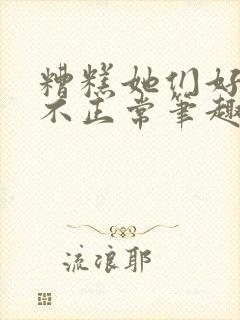 糟糕她们好
不正常笔趣
流浪耶